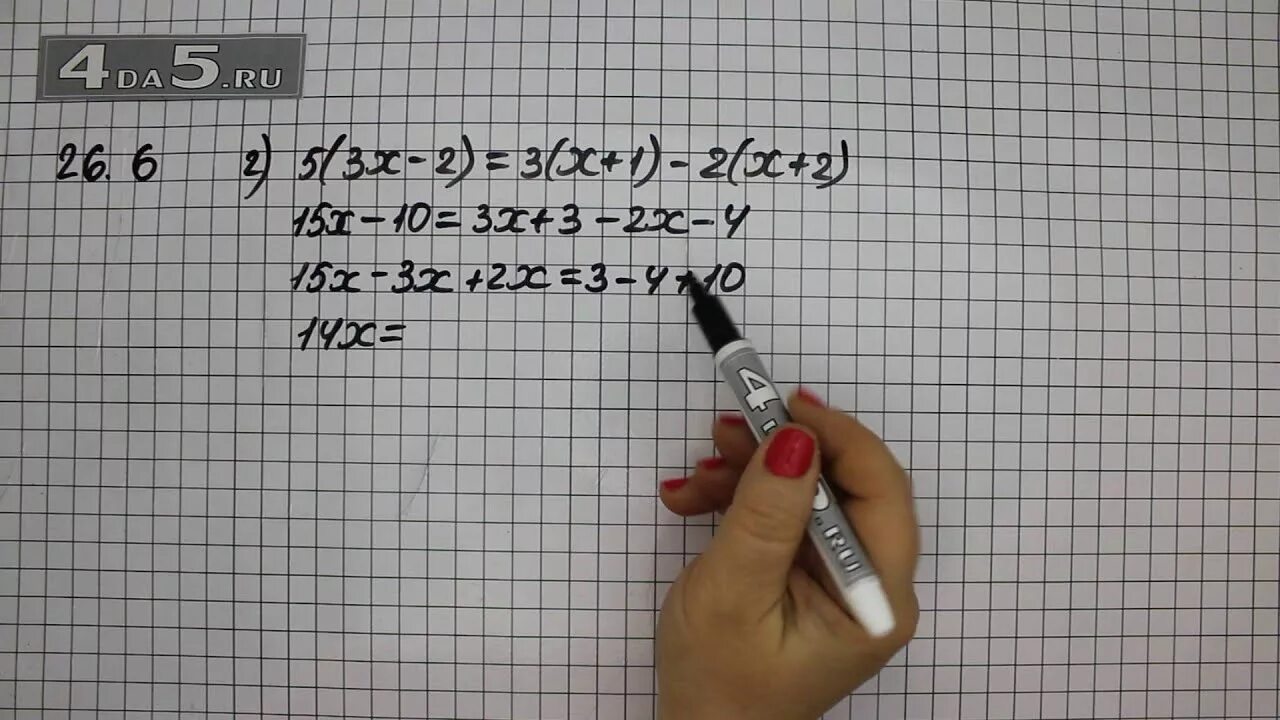 4DA5.RU
26.6 г) 5(3x-2)=3(x+1)-2(x+2)
15x-10=3x+3-2x-4
15x-3x+2x=3-4+10
14x=